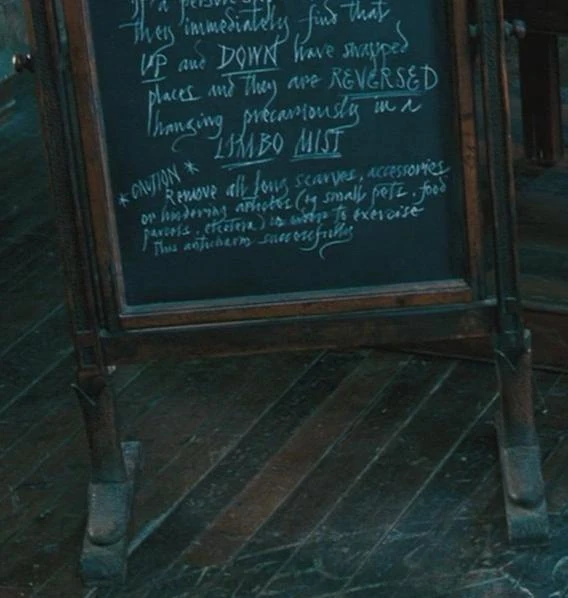 If a person
they immediately find that
UP and DOWN have swapped
places and they are REVERSED
hanging precariously in a
LIMBO MIST
*CAUTION*
Remove all long scarves, accessories
or hindering articles (eg small pets, food
parcels, etcetera) in order to exercise
this anticharm successfully